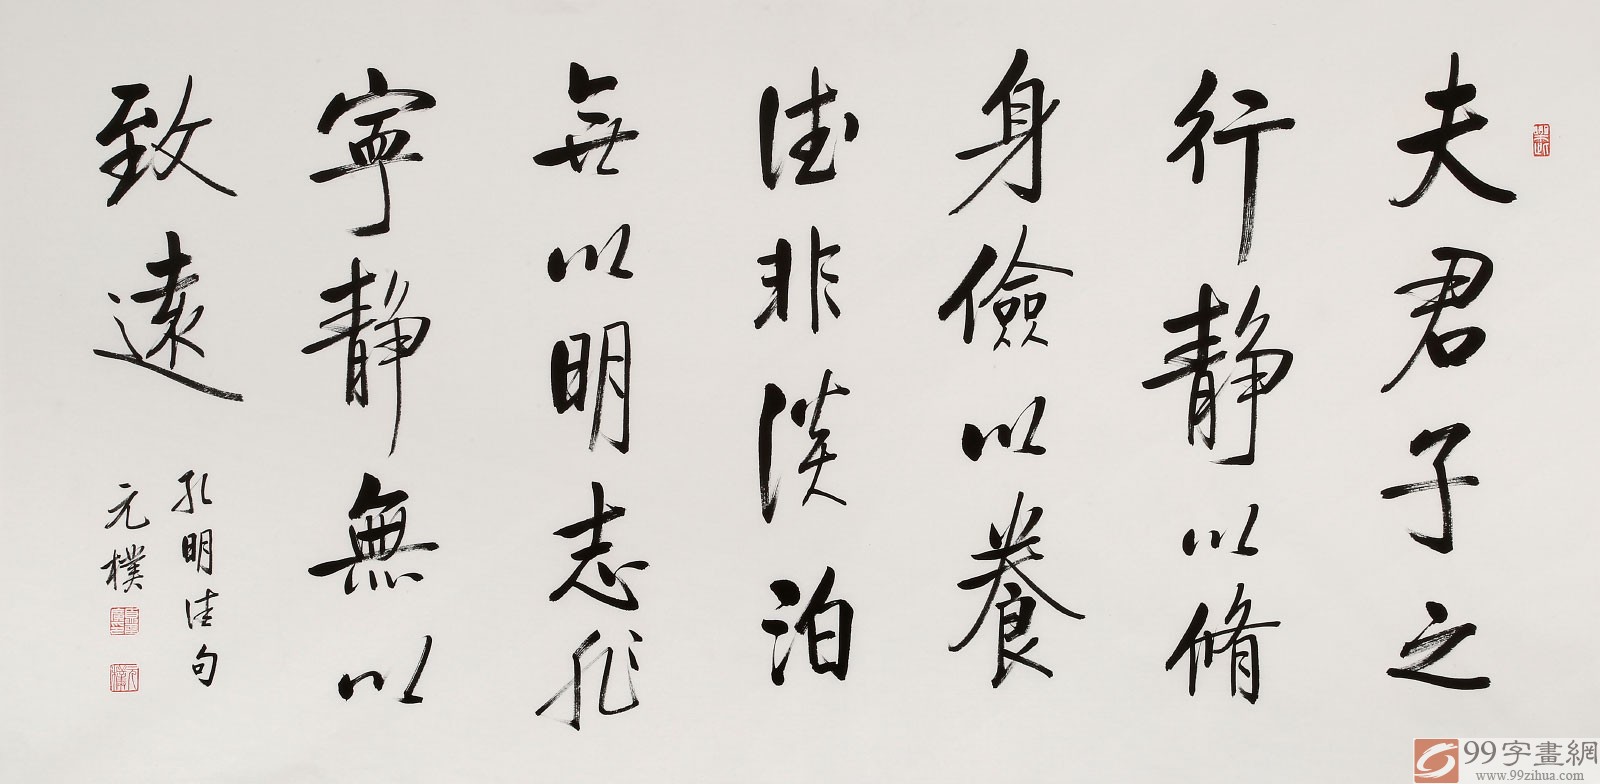 夫君子之
行靜以脩
身儉以養
德非淡泊
無以明志非
寧靜無以
致遠
孔明佳句
元樸
99字畫網
www.99zihua.com